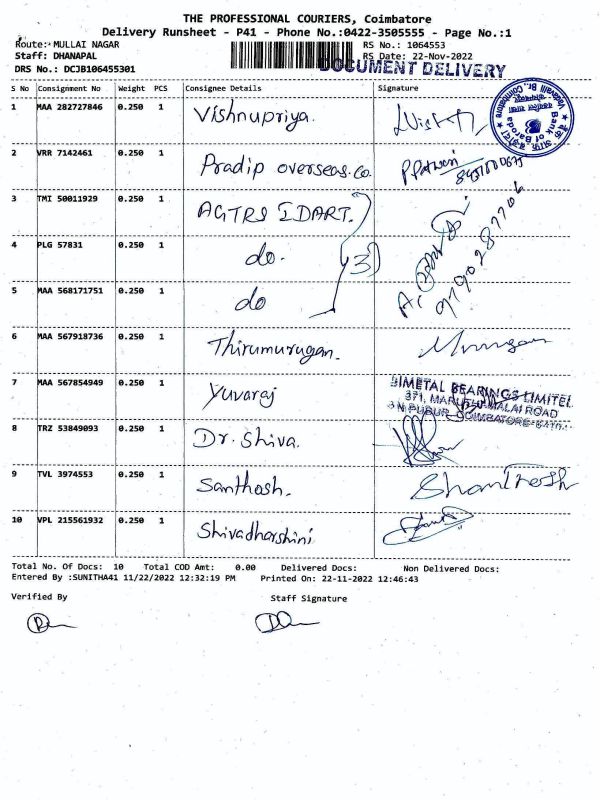 THE PROFESSIONAL COURIERS, Coimbatore
Delivery Runsheet - P41 - Phone No.:0422-3505555 - Page No.:1
Route: MULLAI NAGAR
RS No.: 1064553
Staff: DHANAPAL
RS Date: 22-Nov-2022
DRS No.: DCJB106455301
DOCUMENT DELIVERY
S No Consignment No Weight PCS Consignee Details Signature
1 MAA 282727846 0.250 1 Vishnupriya.
Bank of Baroda
2 VRR 7142461 0.250 1 Pradip overseas.co.
3 TMI 50011929 0.250 1 AGTRS EDART.
4 PLG 57831 0.250 1 do. 3
5 MAA 568171751 0.250 1 do
6 MAA 567918736 0.250 1 Thirumurugan. Murugan
7 MAA 567854949 0.250 1 Yuvaraj
BIMETAL BEARINGS LIMITED
371, MARUTHAMALAI ROAD
COIMBATORE
8 TRZ 53849093 0.250 1 Dr. Shiva.
9 TVL 3974553 0.250 1 Santhosh.
10 VPL 215561932 0.250 1 Shivadharshini
Total No. Of Docs: 10 Total COD Amt: 0.00 Delivered Docs: Non Delivered Docs:
Entered By :SUNITHA41 11/22/2022 12:32:19 PM Printed On: 22-11-2022 12:46:43
Verified By Staff Signature